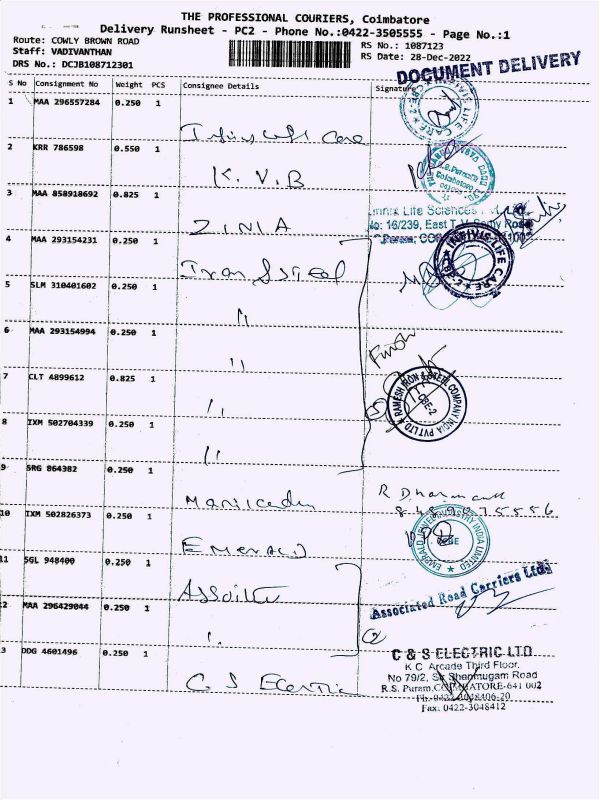 THE PROFESSIONAL COURIERS, Coimbatore
Delivery Runsheet - PC2 - Phone No.:0422-3505555 - Page No.:1
Route: COWLY BROWN ROAD
Staff: VADIVANTHAN
DRS No.: DCJB108712301
RS No.: 1087123
RS Date: 28-Dec-2022
DOCUMENT DELIVERY
S No Consignment No Weight PCS Consignee Details Signature
1 MAA 296557284 0.250 1
LIFE CARE
CBE-2
2 KRR 786598 0.550 1
K. V. B
3 MAA 858918692 0.825 1
ZINIA
Life Sciences
No: 16/239, East
4 MAA 293154231 0.250 1
Iron & Steel
LIFE CARE
5 SLM 310401602 0.250 1
"
6 MAA 293154994 0.250 1
"
Finish
7 CLT 4899612 0.825 1
"
5
RAMESH IRON & STEEL COMPANY INDIA PVT LTD
CBE-2
8 IXM 502704339 0.250 1
"
9 SRG 864382 0.250 1
Manikandan
R Dharman
10 IXM 502826373 0.250 1
Emerald
INDUSTRY INDIA LIMITED
11 SGL 948400 0.250 1
Associated Road Carriers Ltd.
12 MAA 296429044 0.250 1
2
13 DDG 4601496 0.250 1
C S
C & S ELECTRIC LTD.
K C Arcade Third Floor.
No 79/2, Sir Shanmugam Road
R.S. Puram, COIMBATORE-641 002
Ph: 0422-3048406-20
Fax: 0422-3048412